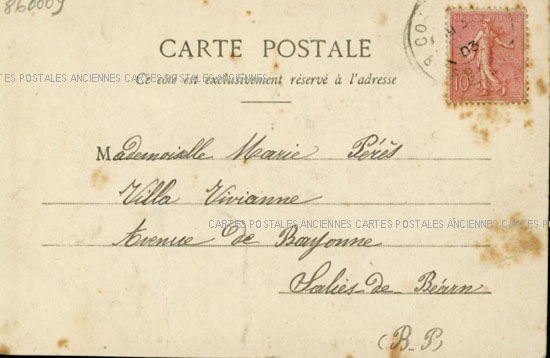 860009
CARTE POSTALE
CARTES POSTALES ANCIENNES CARTES POSTALES ANCIENNES CARTES POSTALES ANCIENNES CARTES POSTALES
Ce côté est exclusivement réservé à l'adresse
10c
03
Mademoiselle Marie Pérès
Villa Vivianne
CARTES POSTALES ANCIENNES CARTES POSTALES ANCIENNES
Avenue de Bayonne
Salies de Béarn
(B-P)